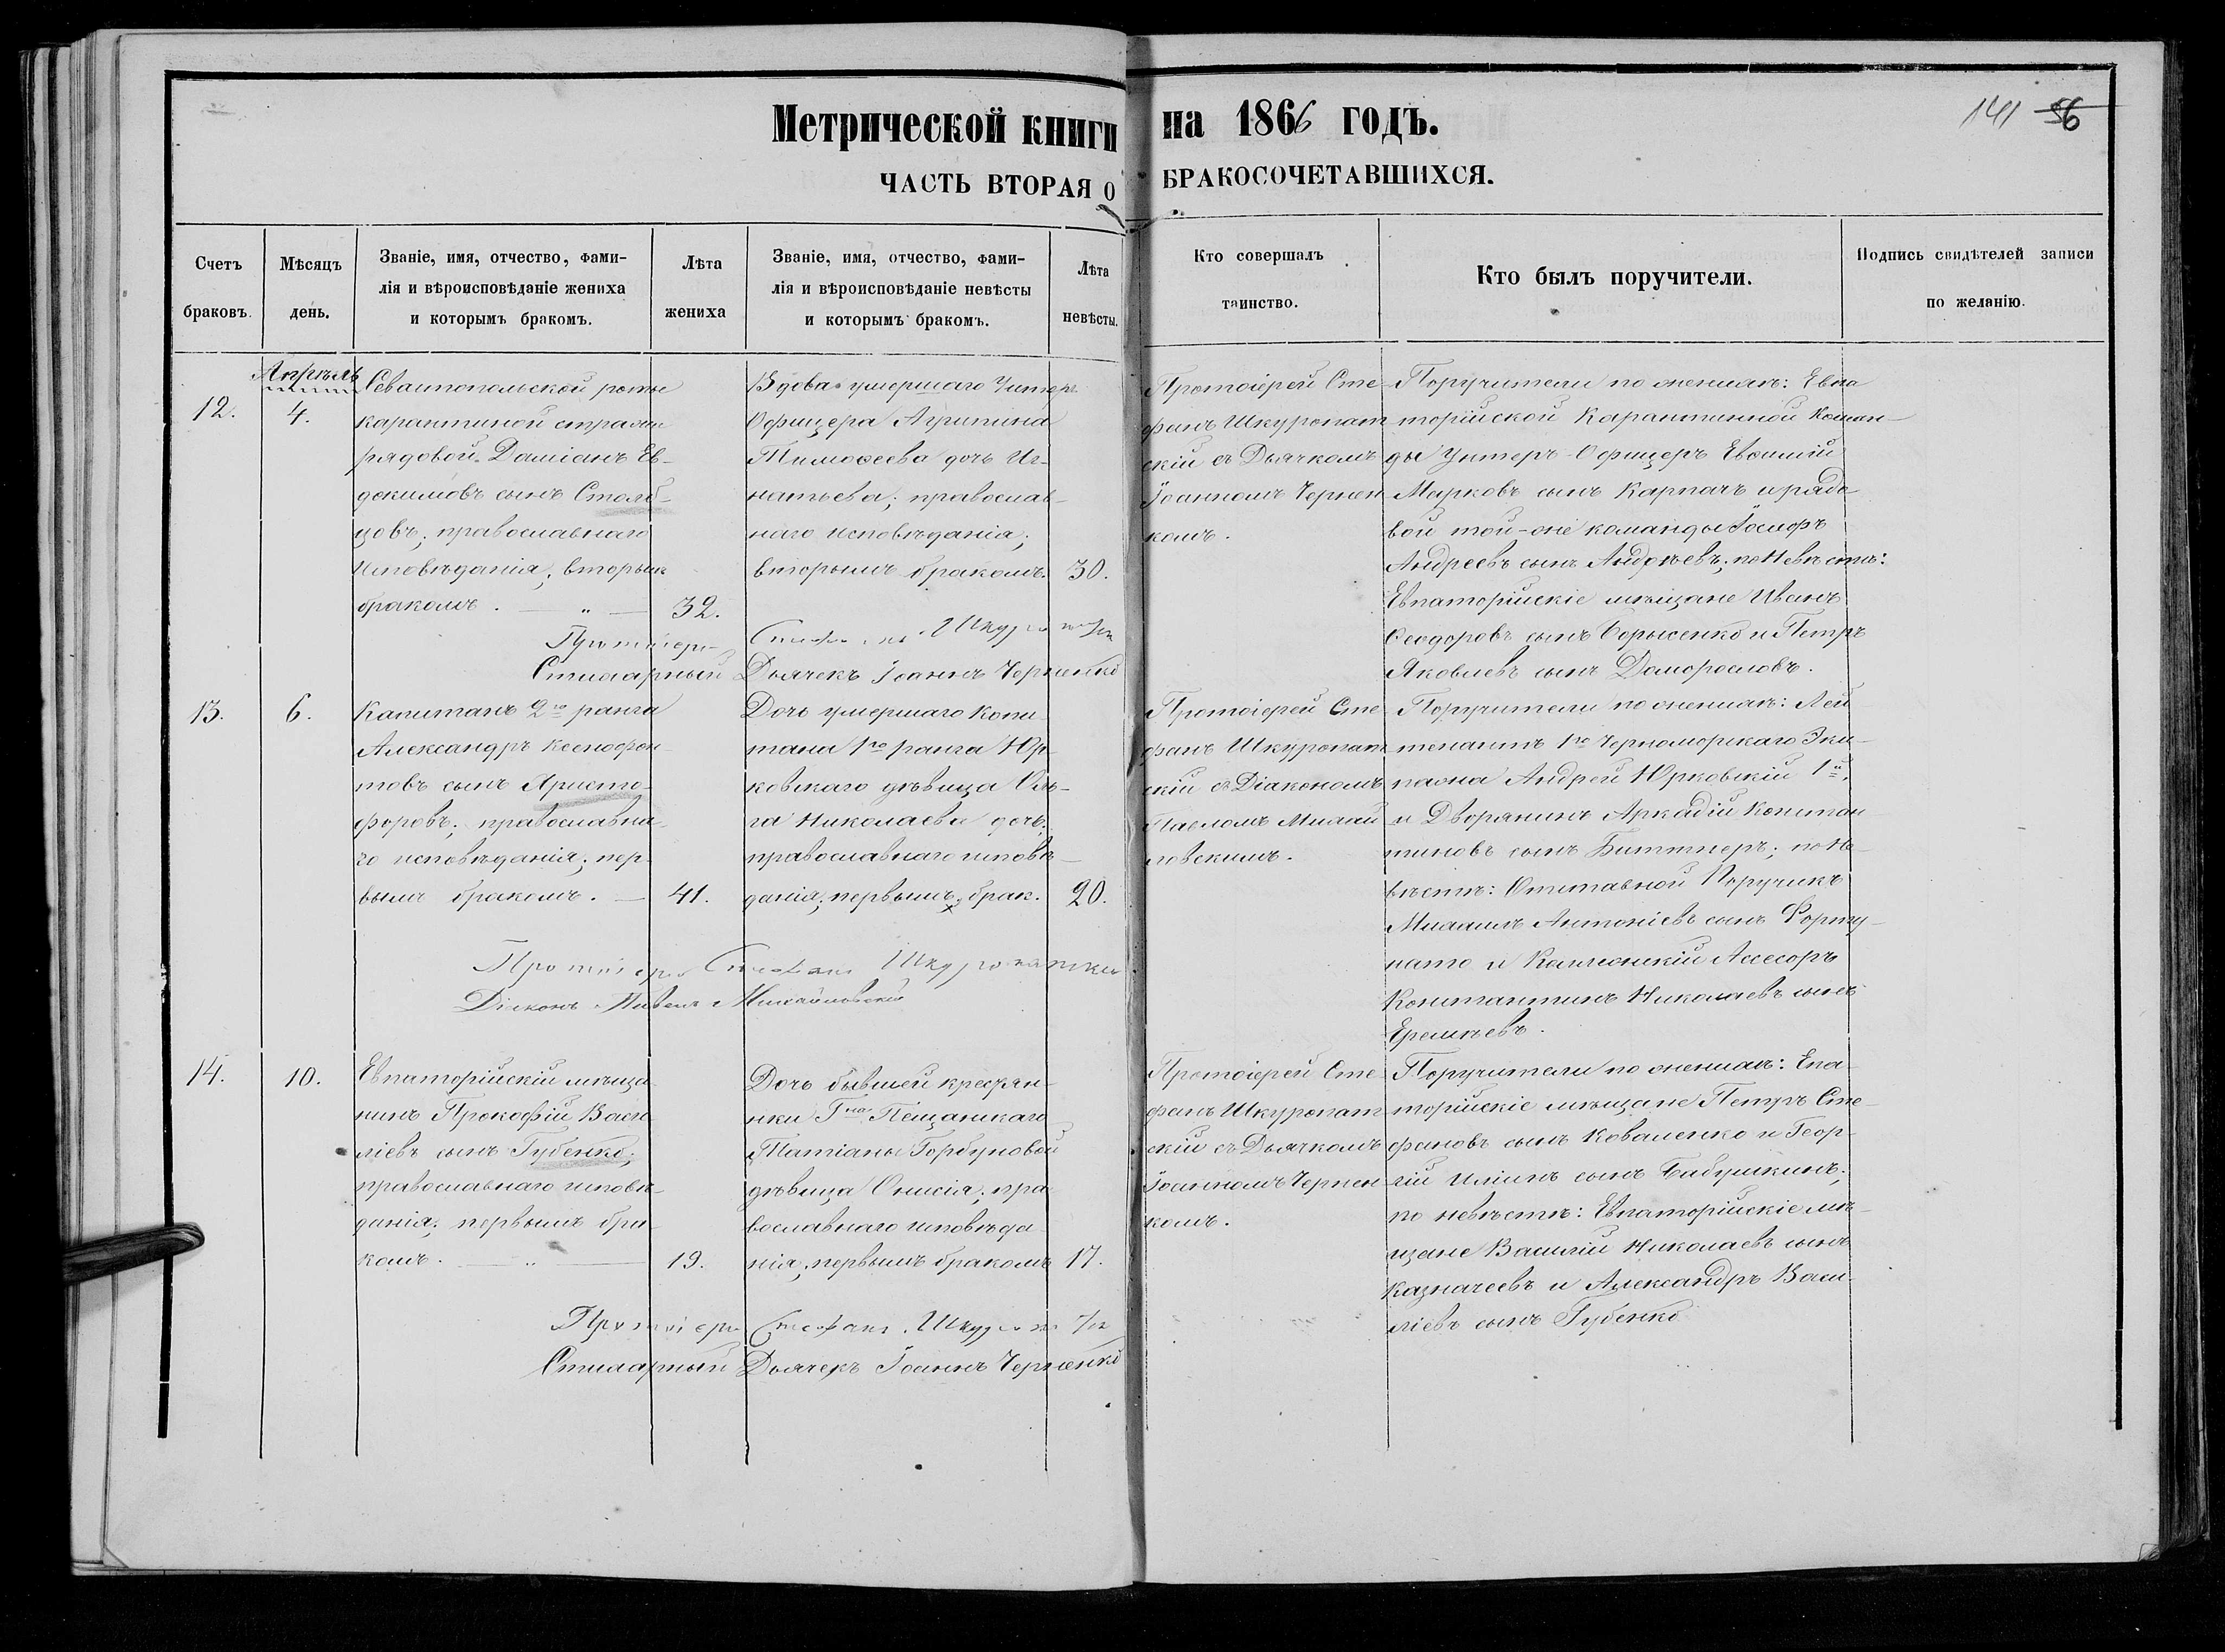 Метрической книги на 1866 годъ.
141 56
ЧАСТЬ ВТОРАЯ О БРАКОСОЧЕТАВШИХСЯ.
Счетъ браковъ.
Мѣсяцъ день.
Званіе, имя, отчество, фами-
лія и вѣроисповѣданіе жениха
и которымъ бракомъ.
Лѣта жениха
Званіе, имя, отчество, фами-
лія и вѣроисповѣданіе невѣсты
и которымъ бракомъ.
Лѣта невѣсты.
Кто совершалъ
таинство.
Кто былъ поручители.
Подпись свидѣтелей записи
по желанію.
Апрѣль
12.
4.
Севастопольской роты
карантиной стражи
рядовой Даміанъ Ев-
докимовъ сынъ Столб-
цовъ; православнаго
исповѣданія; вторымъ
бракомъ. — „ —
32.
Вдова умершаго Унтеръ
Офицера Агрипина
Тимоѳеева дочь Иг-
натьева; православ-
наго исповѣданія;
вторымъ бракомъ.
30.
Протоіерей Сте-
фанъ Шкуропат
скій съ Дьячкомъ
Іоанномъ Чернен
комъ.
Поручители по женихѣ: Евпа
торійской Карантинной Коман-
ды Унтеръ-Офицеръ Евѳимій
Марковъ сынъ Карпачъ и рядо
вой той-же команды Іосифъ
Андреевъ сынъ Андрѣевъ; по Невѣстѣ:
Евпаторійскіе мѣщане Иванъ
Ѳеодоровъ сынъ Борысенко и Петръ
Яковлевъ сынъ Доморословъ.
Протоіерей Стефанъ Шкуропатск
Стихарный Дьячекъ Іоаннъ Черненко
13.
6.
Капитанъ 2го ранга
Александръ Ксенофон-
товъ сынъ Аристо-
форовъ; православна-
го исповѣданія; пер-
вымъ бракомъ. —
41.
Дочь умершаго Копи
тана 1го ранга Юр-
ковскаго дѣвица Оль-
га Николаева дочь;
православнаго исповѣ-
данія; первымъ брак.
20.
Протоіерей Сте-
фанъ Шкуропат
скій съ Діакономъ
Павломъ Михай
ловскимъ.
Поручители по женихѣ: Лей
тенантъ 1го Черноморскаго Эки-
пажа Андрей Юрковскій 1й.
и Дворянинъ Аркадій Констан
тиновъ сынъ Биттнеръ; по Не-
вѣстѣ: Отставной Поручикъ
Михаилъ Антоніевъ сынъ Форту-
нато и Коллежскій Ассесоръ
Константинъ Николаевъ сынъ
Еремѣевъ.
Протоіерей Стефанъ Шкуропатскій
Діаконъ Павелъ Михайловскій
14.
10.
Евпаторійскій мѣща
нинъ Прокофій Васи
ліевъ сынъ Губенко;
православнаго исповѣ-
данія; первымъ бра-
комъ. — „ —
19.
Дочь бывшей крестьян-
ки Гна Пещанскаго
Татіаны Горбуновой
дѣвица Онисія; пра
вославнаго исповѣда
нія; первымъ бракомъ
17.
Протоіерей Сте-
фанъ Шкуропат
скій съ Дьячкомъ
Іоанномъ Чернен
комъ.
Поручители по женихѣ: Епа-
торійскіе мѣщане Петръ Сте-
фановъ сынъ Коваленко и Геор-
гій Иліинъ сынъ Бабушкинъ;
по невѣстѣ: Евпаторійскіе мѣ-
щане Василій Николаевъ сынъ
Казначеевъ и Александръ Васи-
ліевъ сынъ Губенко
Протоіерей Стефанъ Шкуропатск
Стихарный Дьячекъ Іоаннъ Черненко